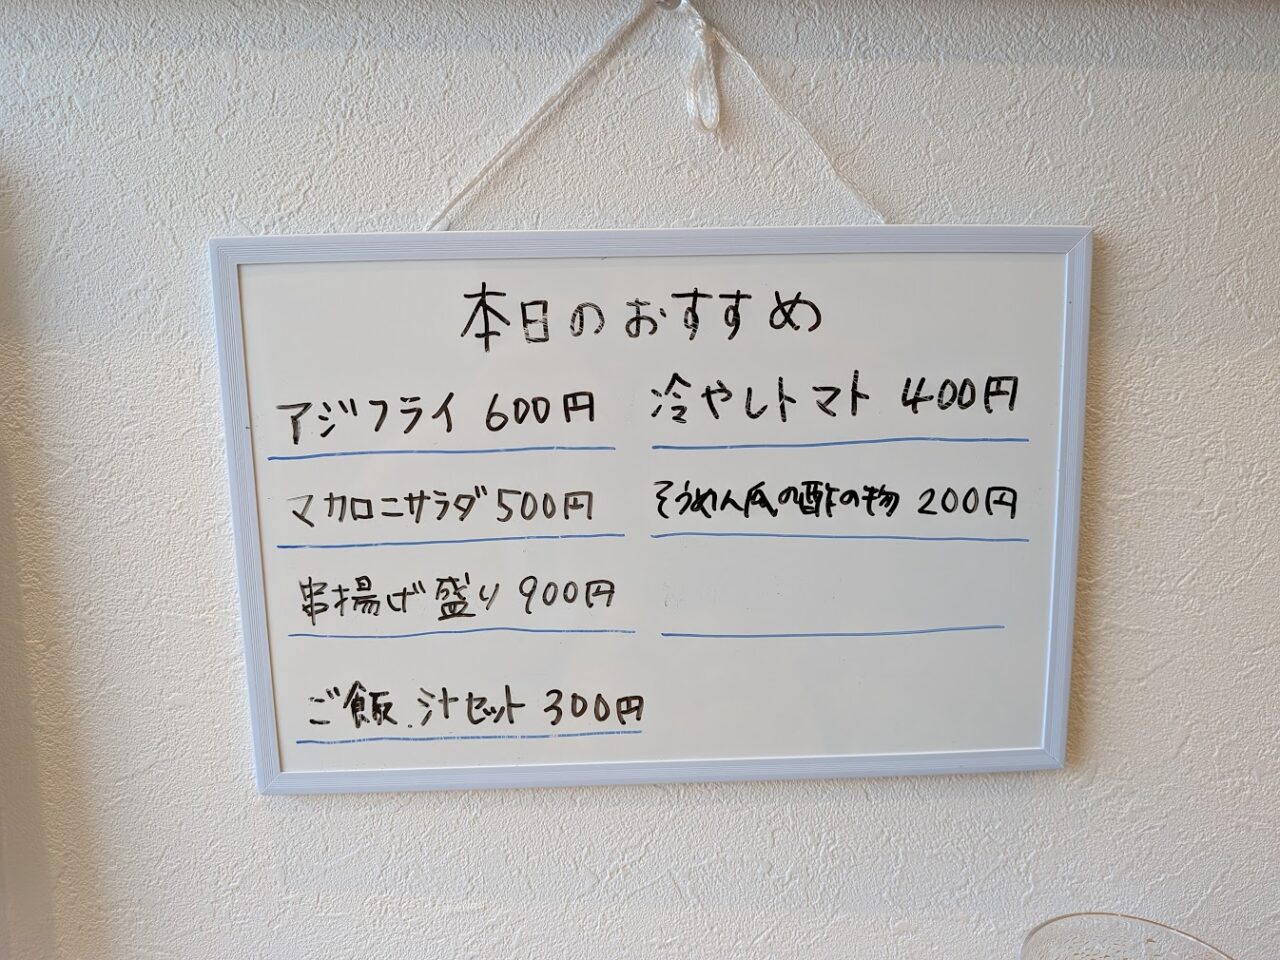 本日のおすすめ
アジフライ 600円
マカロニサラダ 500円
串揚げ盛り 900円
ご飯.汁セット 300円
冷やしトマト 400円
そうめん瓜の酢の物 200円